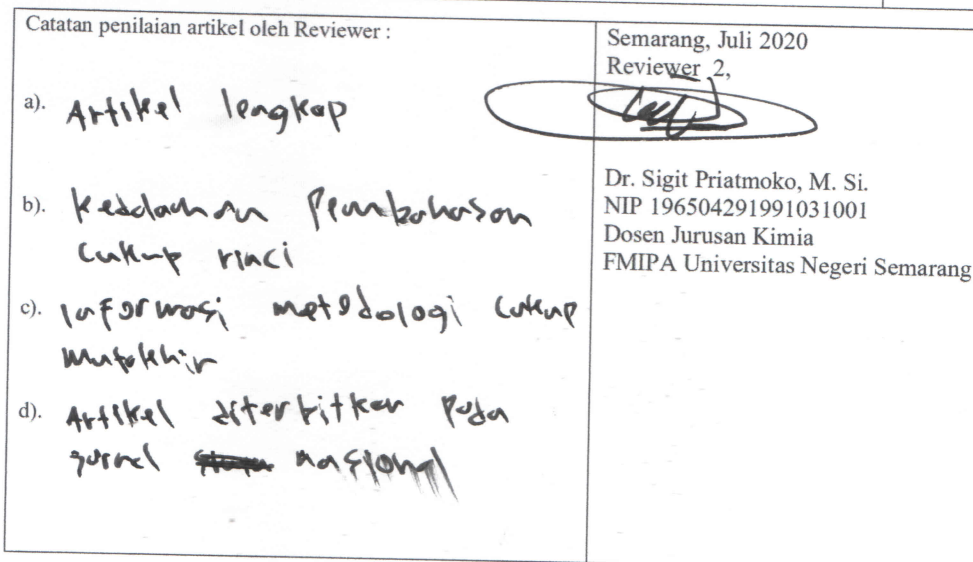 Catatan penilaian artikel oleh Reviewer :
a). Artikel lengkap
b). Kedalaman Pembahasan
cukup rinci
c). Informasi metodologi cukup
mutakhir
d). Artikel diterbitkan pada
jurnal nasional
Semarang, Juli 2020
Reviewer 2,
Dr. Sigit Priatmoko, M. Si.
NIP 196504291991031001
Dosen Jurusan Kimia
FMIPA Universitas Negeri Semarang